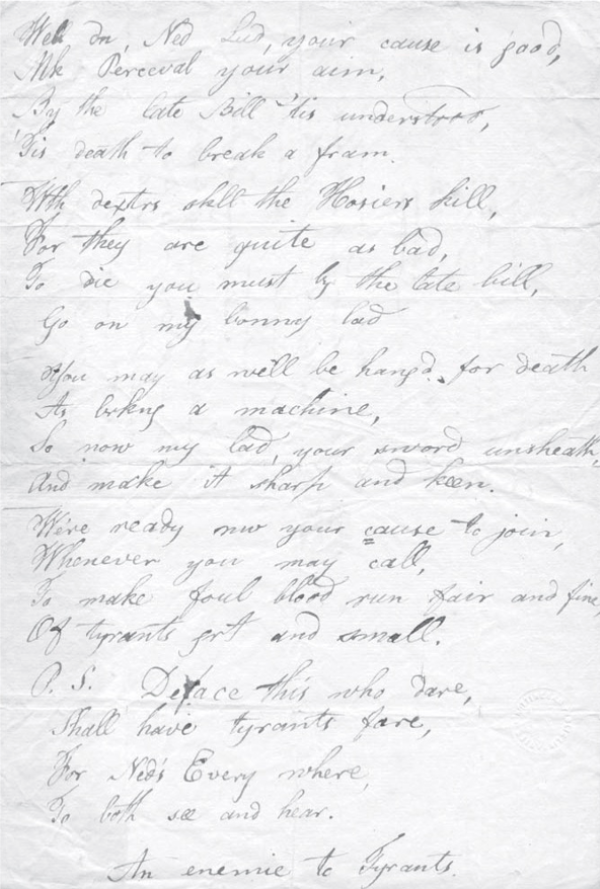 Well dn, Ned Lud, your cause is good,
Mk Perceval your aim,
By the late Bill 'tis understood,
'Tis death to break a fram.
With dextrs skll the Hosiers kill,
For they are quite as bad,
To die you must by the late bill,
Go on my bonny lad
You may as well be hangd. for death
As brkng a machine,
So now my lad, your sword unsheath,
And make it sharp and keen.
We're ready nw your cause to join,
Whenever you may call,
To make foul blood run fair and fine,
Of tyrants grt and small.
P. S. Deface this who dare,
Shall have tyrants fare,
For Ned's Every where,
To both see and hear.
An enemie to Tyrants.